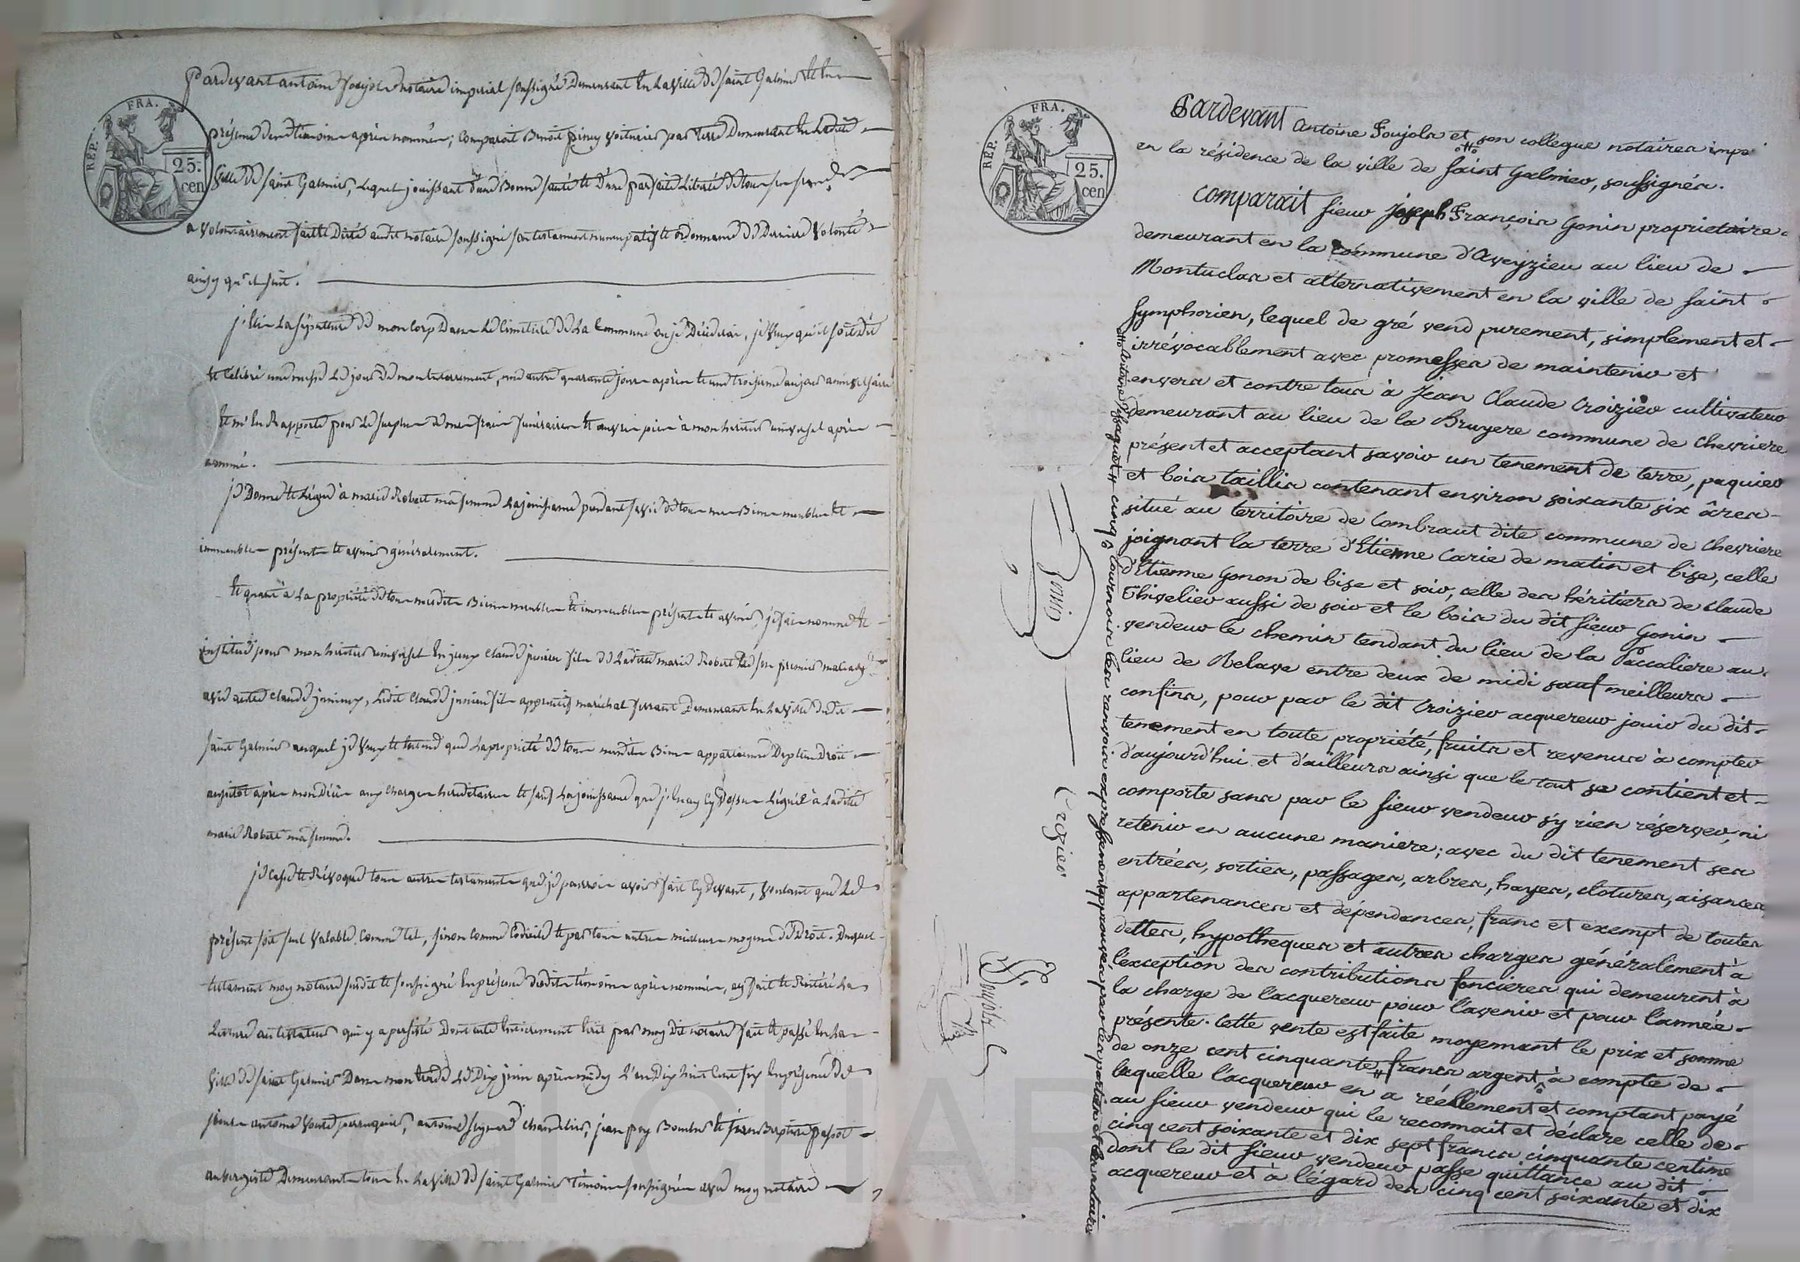 REP. FRA.
25.
cen
Pardevant antoine foujols notaire imperial soussigné Demeurant En la ville de saint Galmier Et En
présence des témoins après nommés; comparait Benoit piney voiturier par terre Demeurant En ladite
ville de saint Galmier, Lequel jouissant d'une Bonne santé Et d'une parfaite Liberté de tous ses sens
a volontairement fait Et Dicté audit notaire soussigné son testament nuncupatif Et ordonnance de Derniere Volonté
ainsy qu'il suit.
j'Elis La sépulture de mon Corp Dans Le Cimetiere de La Commune ou je Décéderai, je Veux qu'il soit dit
Et Célébré une messe Le jour de mon Enterrement, une autre quarante jours après Et une troisieme au jour anniversaire
Et m'En Rapporte pour Le surplus de mes frais funéraires Et œuvres pies à mon héritier universel après
nommé.
je Donne Et Lègue à marie Robert ma femme La jouissance pendant sa vie de tous mes Biens meubles Et
immeubles présents Et avenir généralement.
Et quant à La propriété de tous mesdits Biens meubles Et immeubles présents Et avenir, je fais nomme Et
institue pour mon héritier universel
avec autre Claude
saint Galmier auquel je Veux Et Entend que La propriété de tous mesdits Biens appartienne De plein Droit
aussitot après mon Décès aux charges héréditaires Et sauf La jouissance que j'En ay cy Dessus Léguée à Ladite
marie Robert ma femme.
je Casse Et Révoque tous autres testaments que je pourrois avoir fait cy Devant, Voulant que Le
présent soit seul Valable Comme tel, sinon Comme Codicile Et par tous autres meilleurs moyens de Droit. Duquel
testament moy notaire susdit Et soussigné En présence desdits témoins après nommés, ay fait Et Réitéré La
Lecture au testateur qui y a persisté Dont acte Entierement Ecrit par moy Dit notaire fait Et passé En La
Ville de saint Galmier Dans mon Etude Le Dix juin après midy L'an Dix huit Cent six En présence de
sieurs antoine perruquier, antoine chandelier, jean Et jean Baptiste
aubergiste Demeurants tous En La Ville de saint Galmier témoins soussignés avec moy notaire
REP. FRA.
25.
cen
Pardevant Antoine Foujols et son collegue notaires imp
en la résidence de la ville de saint Galmier, soussignés.
Comparait sieur Joseph François Gonin proprietaire
demeurant en la commune d'Aveyzieu au lieu de
Montuclas et alternativement en la ville de saint
symphorien, lequel de gré vend purement, simplement et
irrévocablement avec promesses de maintenir et
envers et contre tous à Jean Claude Croizier cultivateur
demeurant au lieu de la Bruyere commune de Chevriere
présent et acceptant savoir un tenement de terre, paquier
et bois taillis contenant environ soixante six âres
situé au territoire de Combraut dite commune de Chevriere
joignant la terre d'Etienne Carie de matin et bize, celle
d'Etienne Gonon de bise et soir, celle des héritiers de Claude
Thivelier aussi de soir et le bois du dit sieur Gonin
vendeur le chemin tendant du lieu de la Paccaliere au
lieu de Relave entre deux de midi sauf meilleurs
confins, pour par le dit Croizier acquereur jouir du dit
tenement en toute propriété, fruits et revenus à compter
d'aujourd'hui et d'ailleurs ainsi que le tout se contient et
comporte sans par le sieur vendeur s'y rien réserver, ni
retenir en aucune maniere; avec du dit tenement ses
entrées, sorties, passages, arbres, hayes, clotures, aisances
appartenances et dépendances, franc et exempt de toutes
dettes, hypotheques et autres charges généralement à
l'exception des contributions foncieres qui demeurent à
la charge de l'acquereur pour l'avenir et pour l'année
présente. Cette vente est faite moyennant le prix et somme
de onze cent cinquante francs argent, à compte de
laquelle l'acquereur en a réellement et comptant payé
au sieur vendeur qui le reconnait et déclare celle de
cinq cent soixante et dix sept francs cinquante centime
dont le dit sieur vendeur passe quittance au dit
acquereur et à l'égard des cinq cent soixante et dix
cinq tournois les renvois expressement approuvés par les parties et les notaires
Gonin
Crozier
Foujols
Pascal CHAR